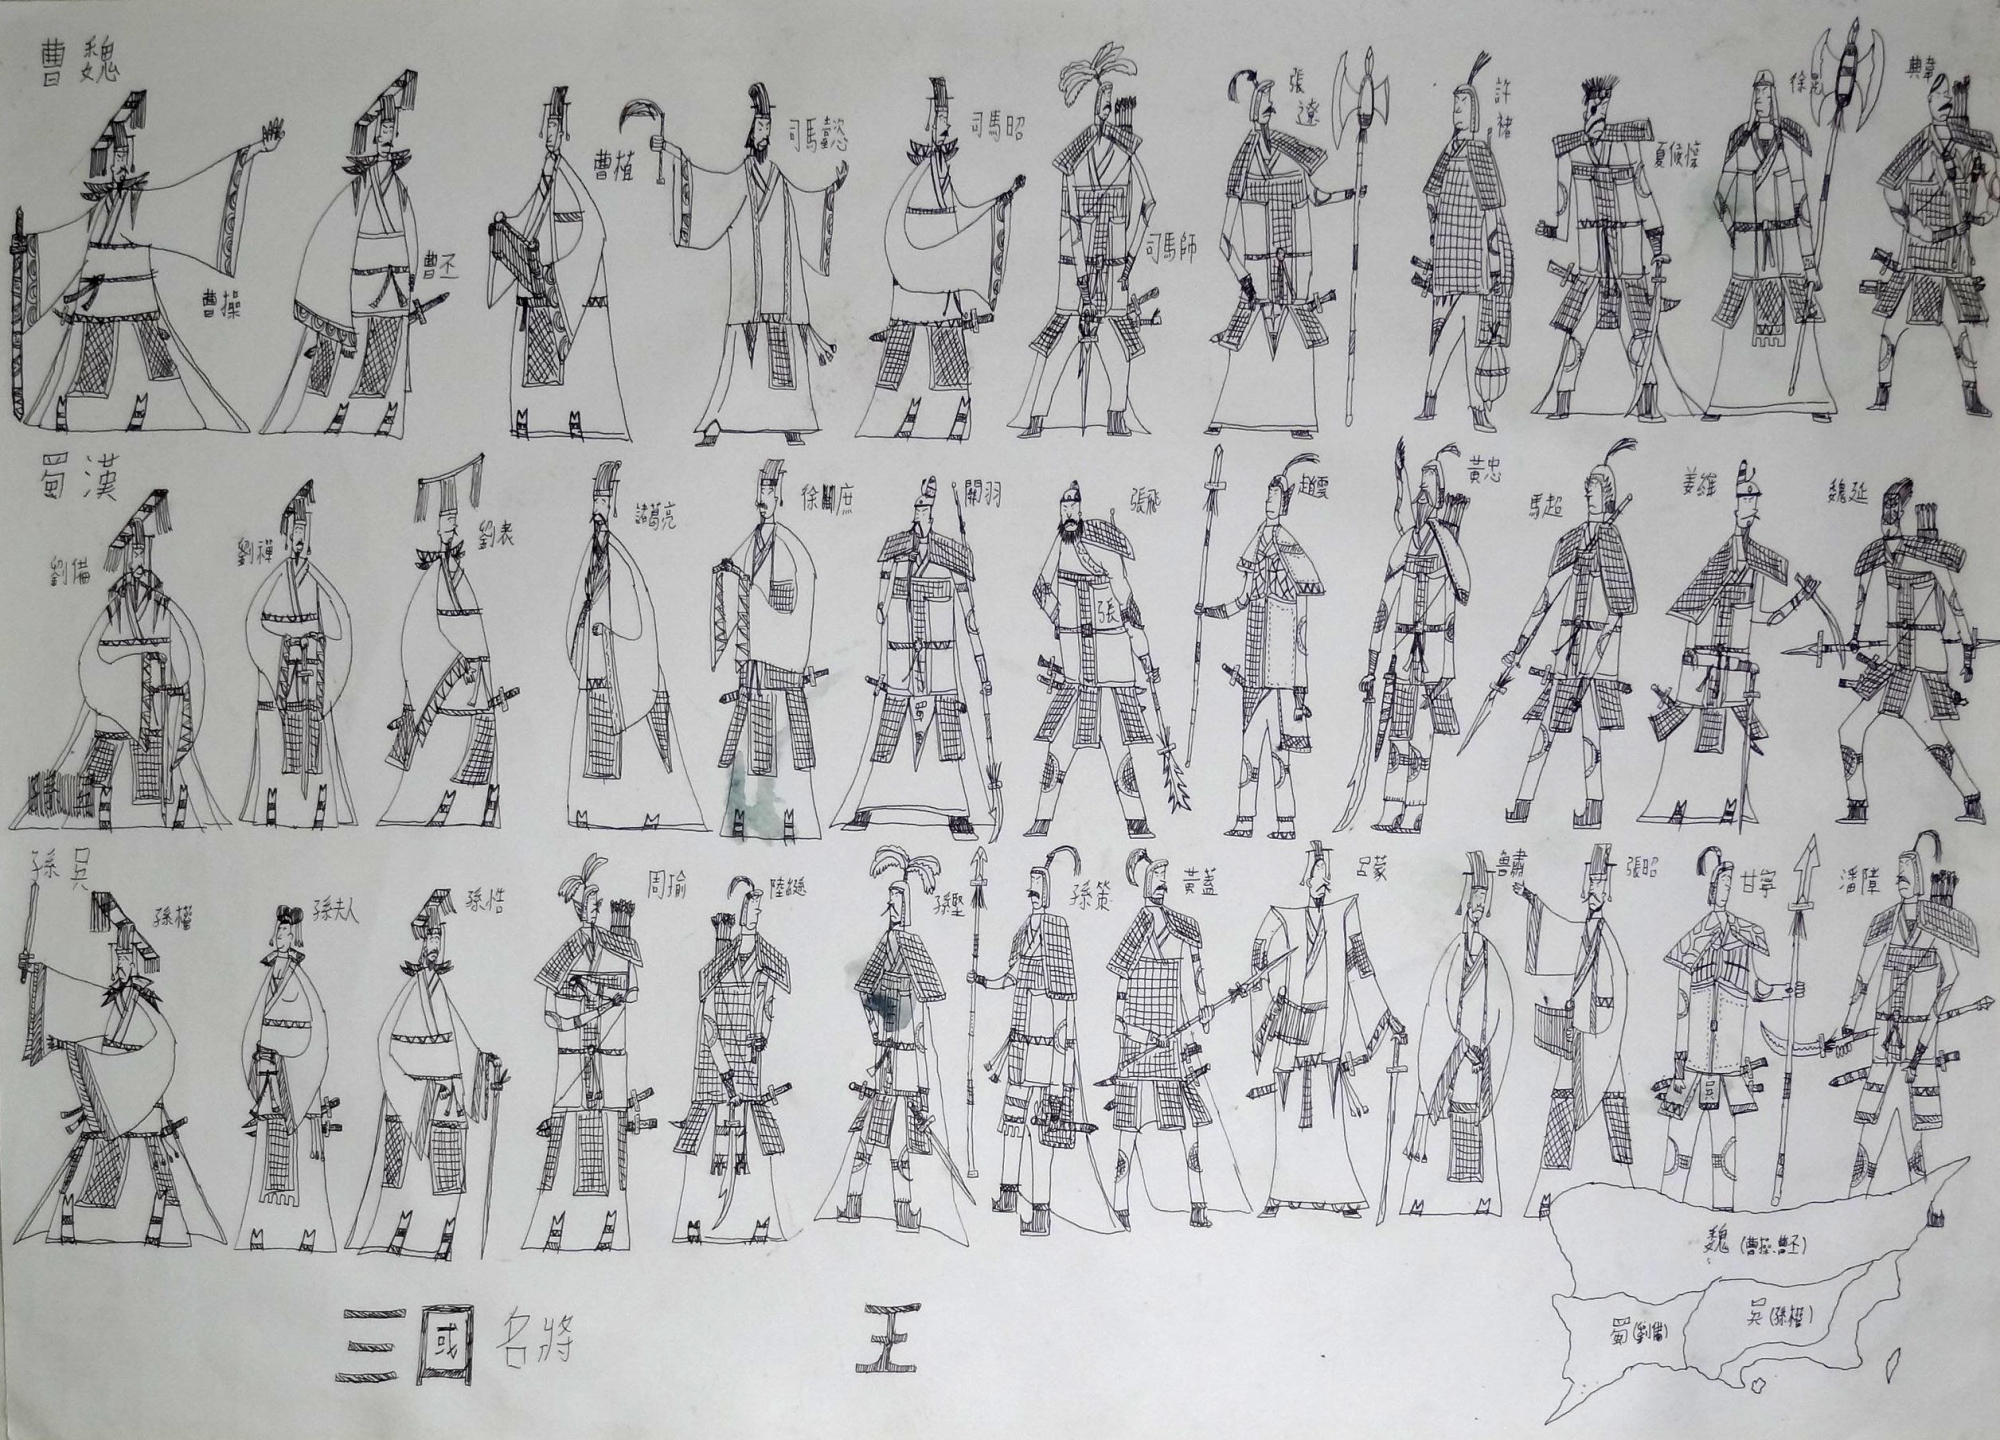 曹魏
曹操
曹丕
曹植
司馬懿
司馬昭
司馬師
張遼
許褚
夏侯惇
徐晃
典韋
蜀漢
劉備
劉禪
劉表
諸葛亮
徐庶
關羽
張飛
張
趙雲
黃忠
馬超
姜維
魏延
蜀
孫吳
孫權
孫夫人
孫皓
周瑜
陸遜
孫堅
孫策
黃蓋
呂蒙
魯肅
張昭
甘寧
吳
潘璋
魏(曹操、曹丕)
蜀(劉備)
吳(孫權)
三國名將
王